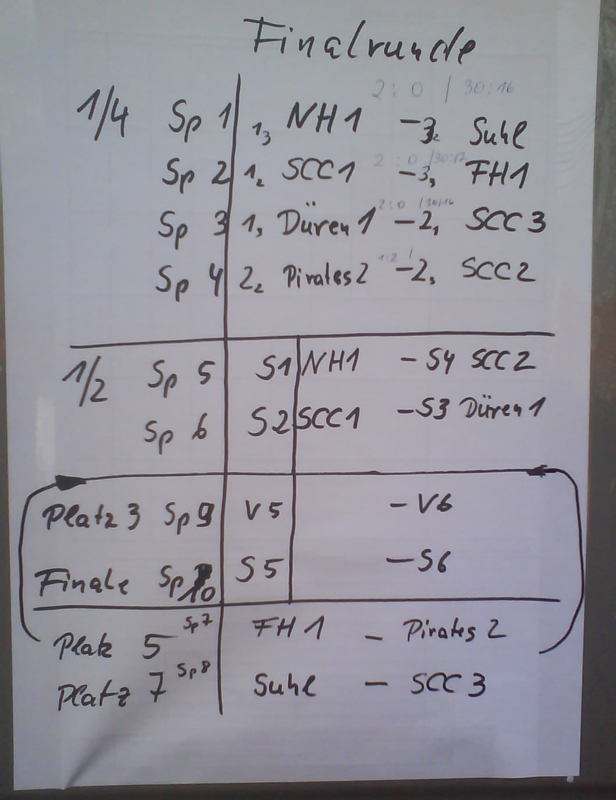 Finalrunde
2:0 / 30:16
1/4 Sp 1 1, NH1 - 3, Suhl
2:0
Sp 2 1, SCC1 - 3, FH1
2:0 / 30/16
Sp 3 1, Düren 1 - 2, SCC3
1:2 /
Sp 4 2, Pirates 2 - 2, SCC2
1/2 Sp 5 S1 NH1 - S4 SCC2
Sp 6 S2 SCC1 - S3 Düren 1
Platz 3 Sp 9 V5 - V6
Finale Sp 10 S5 - S6
Platz 5 Sp7 FH1 - Pirates 2
Platz 7 Sp8 Suhl - SCC3